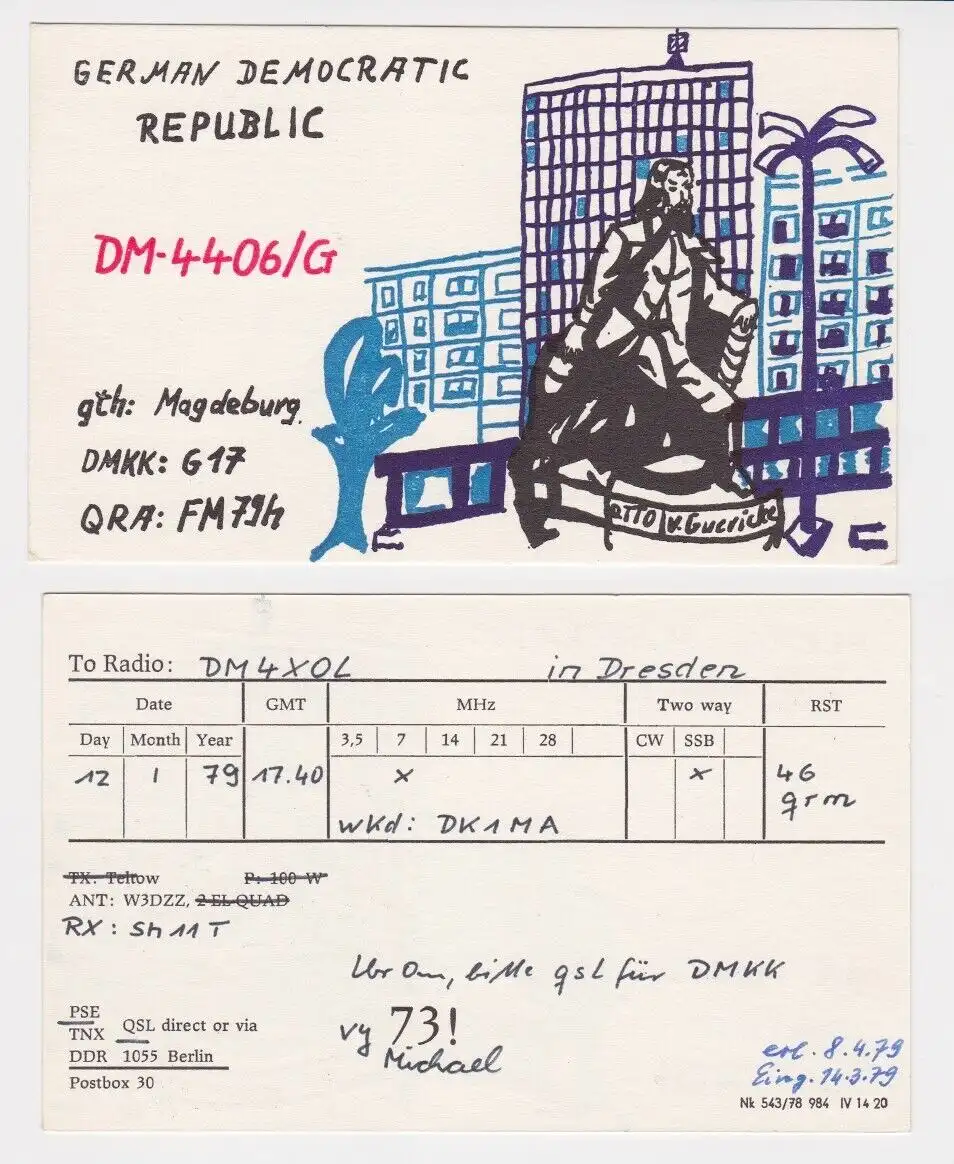 GERMAN DEMOCRATIC
REPUBLIC
DM-4406/G
qth: Magdeburg.
DMKK: G17
QRA: FM79h
OTTO v. Guericke
To Radio: DM4XOL in Dresden
Date GMT MHz Two way RST
Day Month Year 3,5 7 14 21 28 CW SSB
12 1 79 17.40 x x 46
qrm
wkd: DK1MA
TX: Teltow P: 100 W
ANT: W3DZZ, 2 EL QUAD
RX: Sh 11 T
lbr Om, bitte qsl für DMKK
PSE
TNX QSL direct or via
DDR 1055 Berlin
Postbox 30
vy 73!
Michael
erl. 8.4.79
Eing. 14.3.79
Nk 543/78 984 IV 14 20